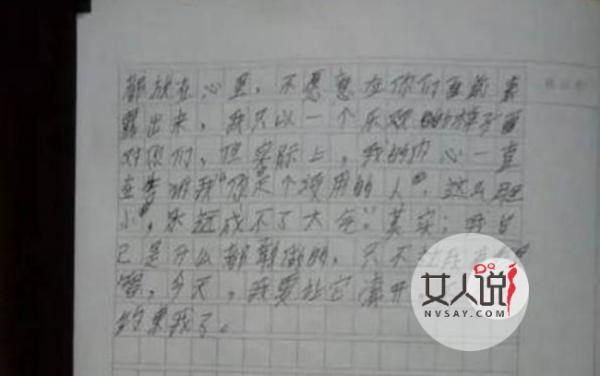 都放在心里，不愿意在你们面前表
露出来，我只以一个乐观的样子面
对你们，但实际上，我的内心一直
在告诉我“你是个没用的人”，这么胆
小，永远成不了大气”其实；我自
己是什么都敢做的，只不过
，今天，我要让它离开，
约束我了。
女人说
NVSAY.COM